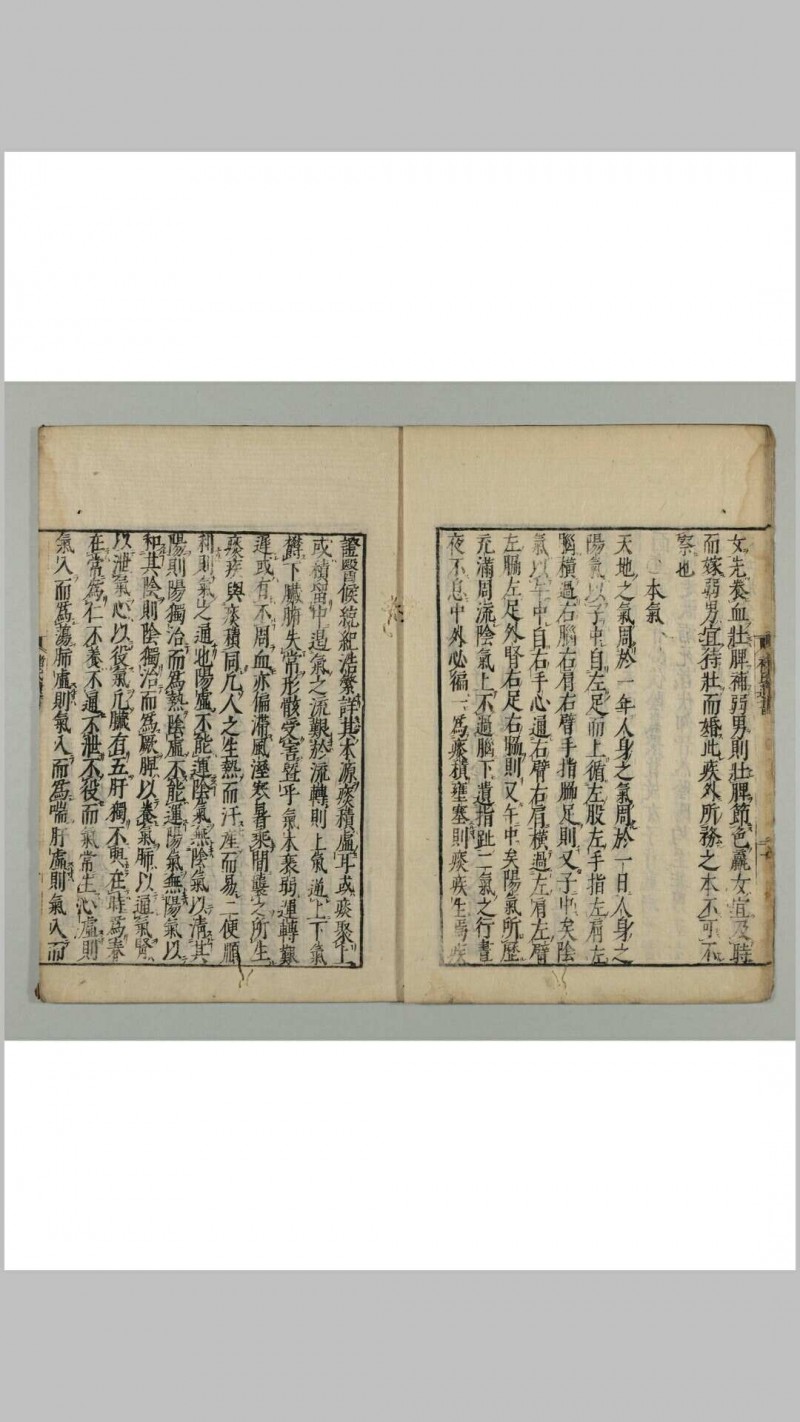 女先養血壯脾補弱男則壯脾節色羸女宜及時
而嫁弱男宜待壯而婚此疾外所務之本不可不
察也
本氣
天地之氣周於一年人身之氣周於一日人身之
陽氣以子中自左足而上循左股左手指左肩左
腦橫過右腦右肩右臂手指脇足則又子中矣陰
氣以午中自右手心通右臂右肩橫過左肩左臂
左脇左足外腎右足右脇則又午中矣陽氣所歷
充滿周流陰氣上不過腦下遺指趾二氣之行晝
夜不息中外必徧一為痰積壅塞則痰疾生焉疾
證醫候統紀浩繁詳其本源痰積虛耳或痰聚上
或積留中遏氣之流艱於流轉則上氣逆上下氣
欝下臟腑失常形骸受害曁乎氣本衰弱運轉艱
遲或有不周血亦偏滯風溼寒暑乘間襲之所生
痰疾與痰積同凡人之生熱而汗產而易二便順
利則氣之通也陽虛不能運陰氣無陰氣以淸其
陽則陽獨治而爲熱陰虛不能運陽氣無陽氣以
和其陰則陰獨治而爲厥脾以養氣肺以通氣腎
以泄氣心以役氣凡臟有五肝獨不與在時爲春
在常爲仁不養不通不泄不役而氣常生心虛則
氣入而爲蕩肺虛則氣入而爲喘肝虛則氣入而